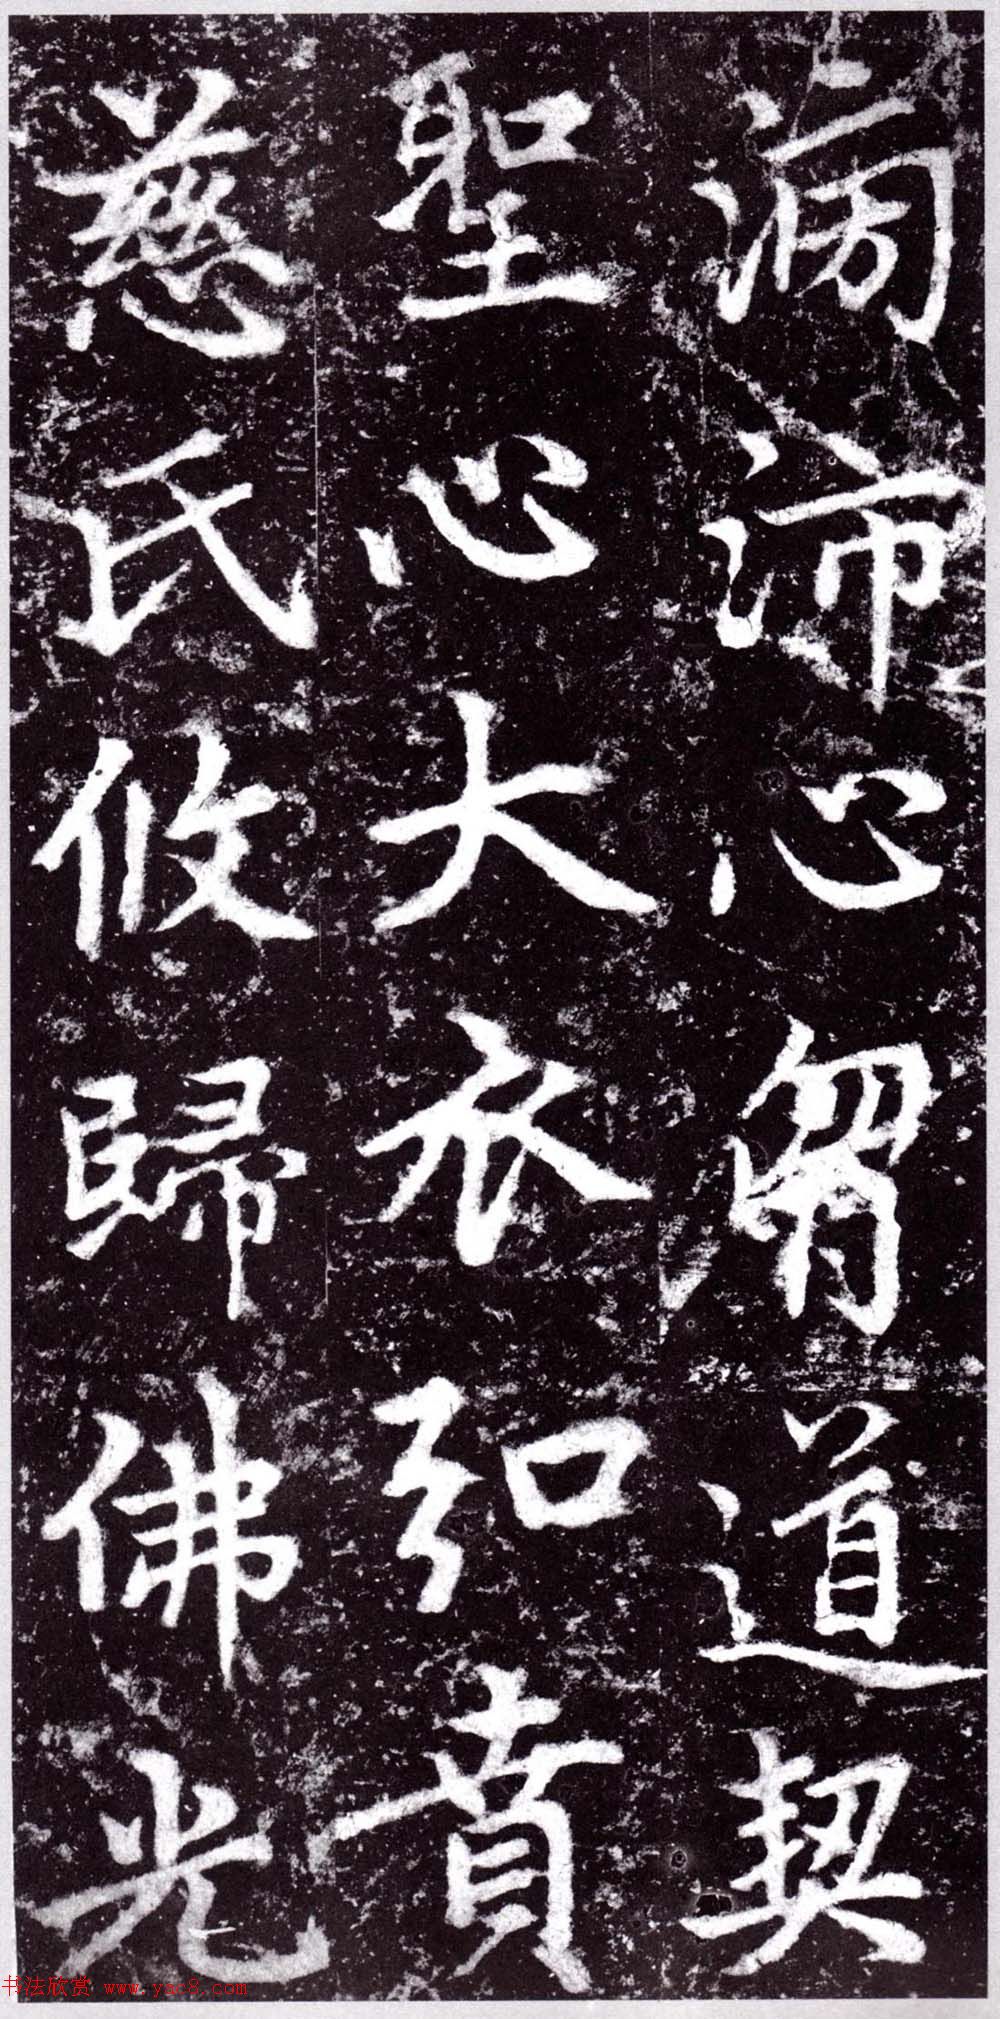 滂沛心胷道契
聖心大衣弘賁
慈氏攸歸佛光
书法欣赏 www.yac8.com